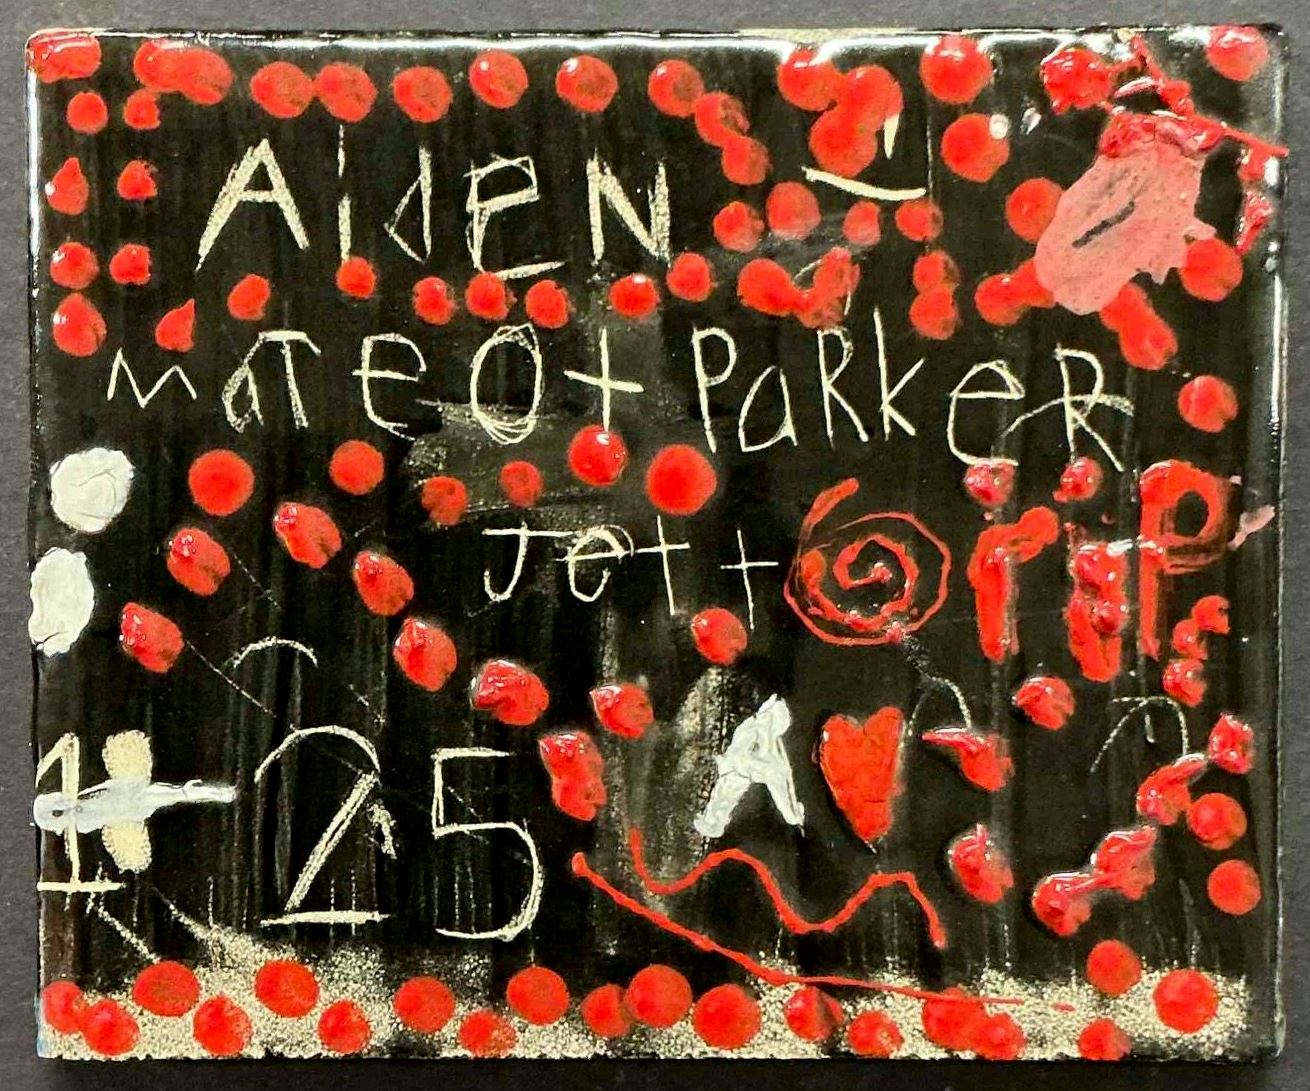 AidEN
maTEO + PaRkeR
Jett + rip
1 + 25 A